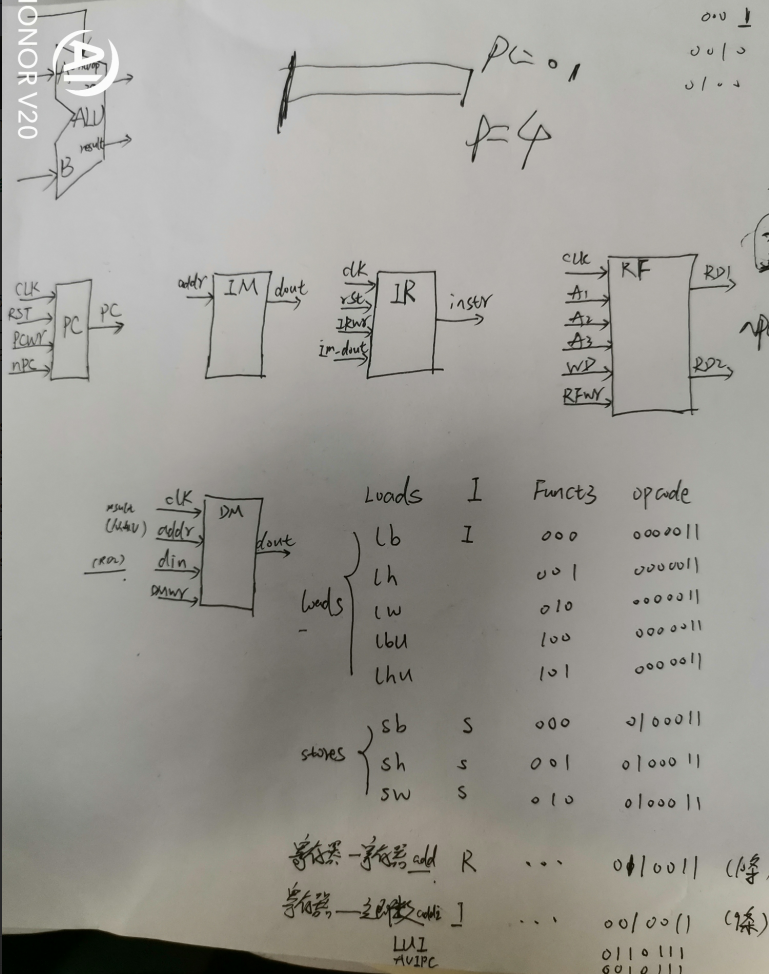 HONOR V20
AI
ALU
result
B
PC=0,
P=4
001
0010
0100
CLK
RST
PCWr
nPC
PC
PC
addr
IM
dout
clk
rst
IRWr
im-dout
IR
instr
CLK
A1
A2
A3
WD
RFWr
RF
RD1
RD2
clk
addr
din
DMWr
DM
dout
(RD2)
Loads I Funct3 opcode
loads
lb I 000 0000011
lh 001 0000011
lw 010 0000011
lbu 100 0000011
lhu 101 0000011
stores
sb S 000 0100011
sh S 001 0100011
sw S 010 0100011
寄存器—寄存器 add R ... 0110011
寄存器—立即数 addi I ... 0010011
LUI 0110111
AUIPC 0010111